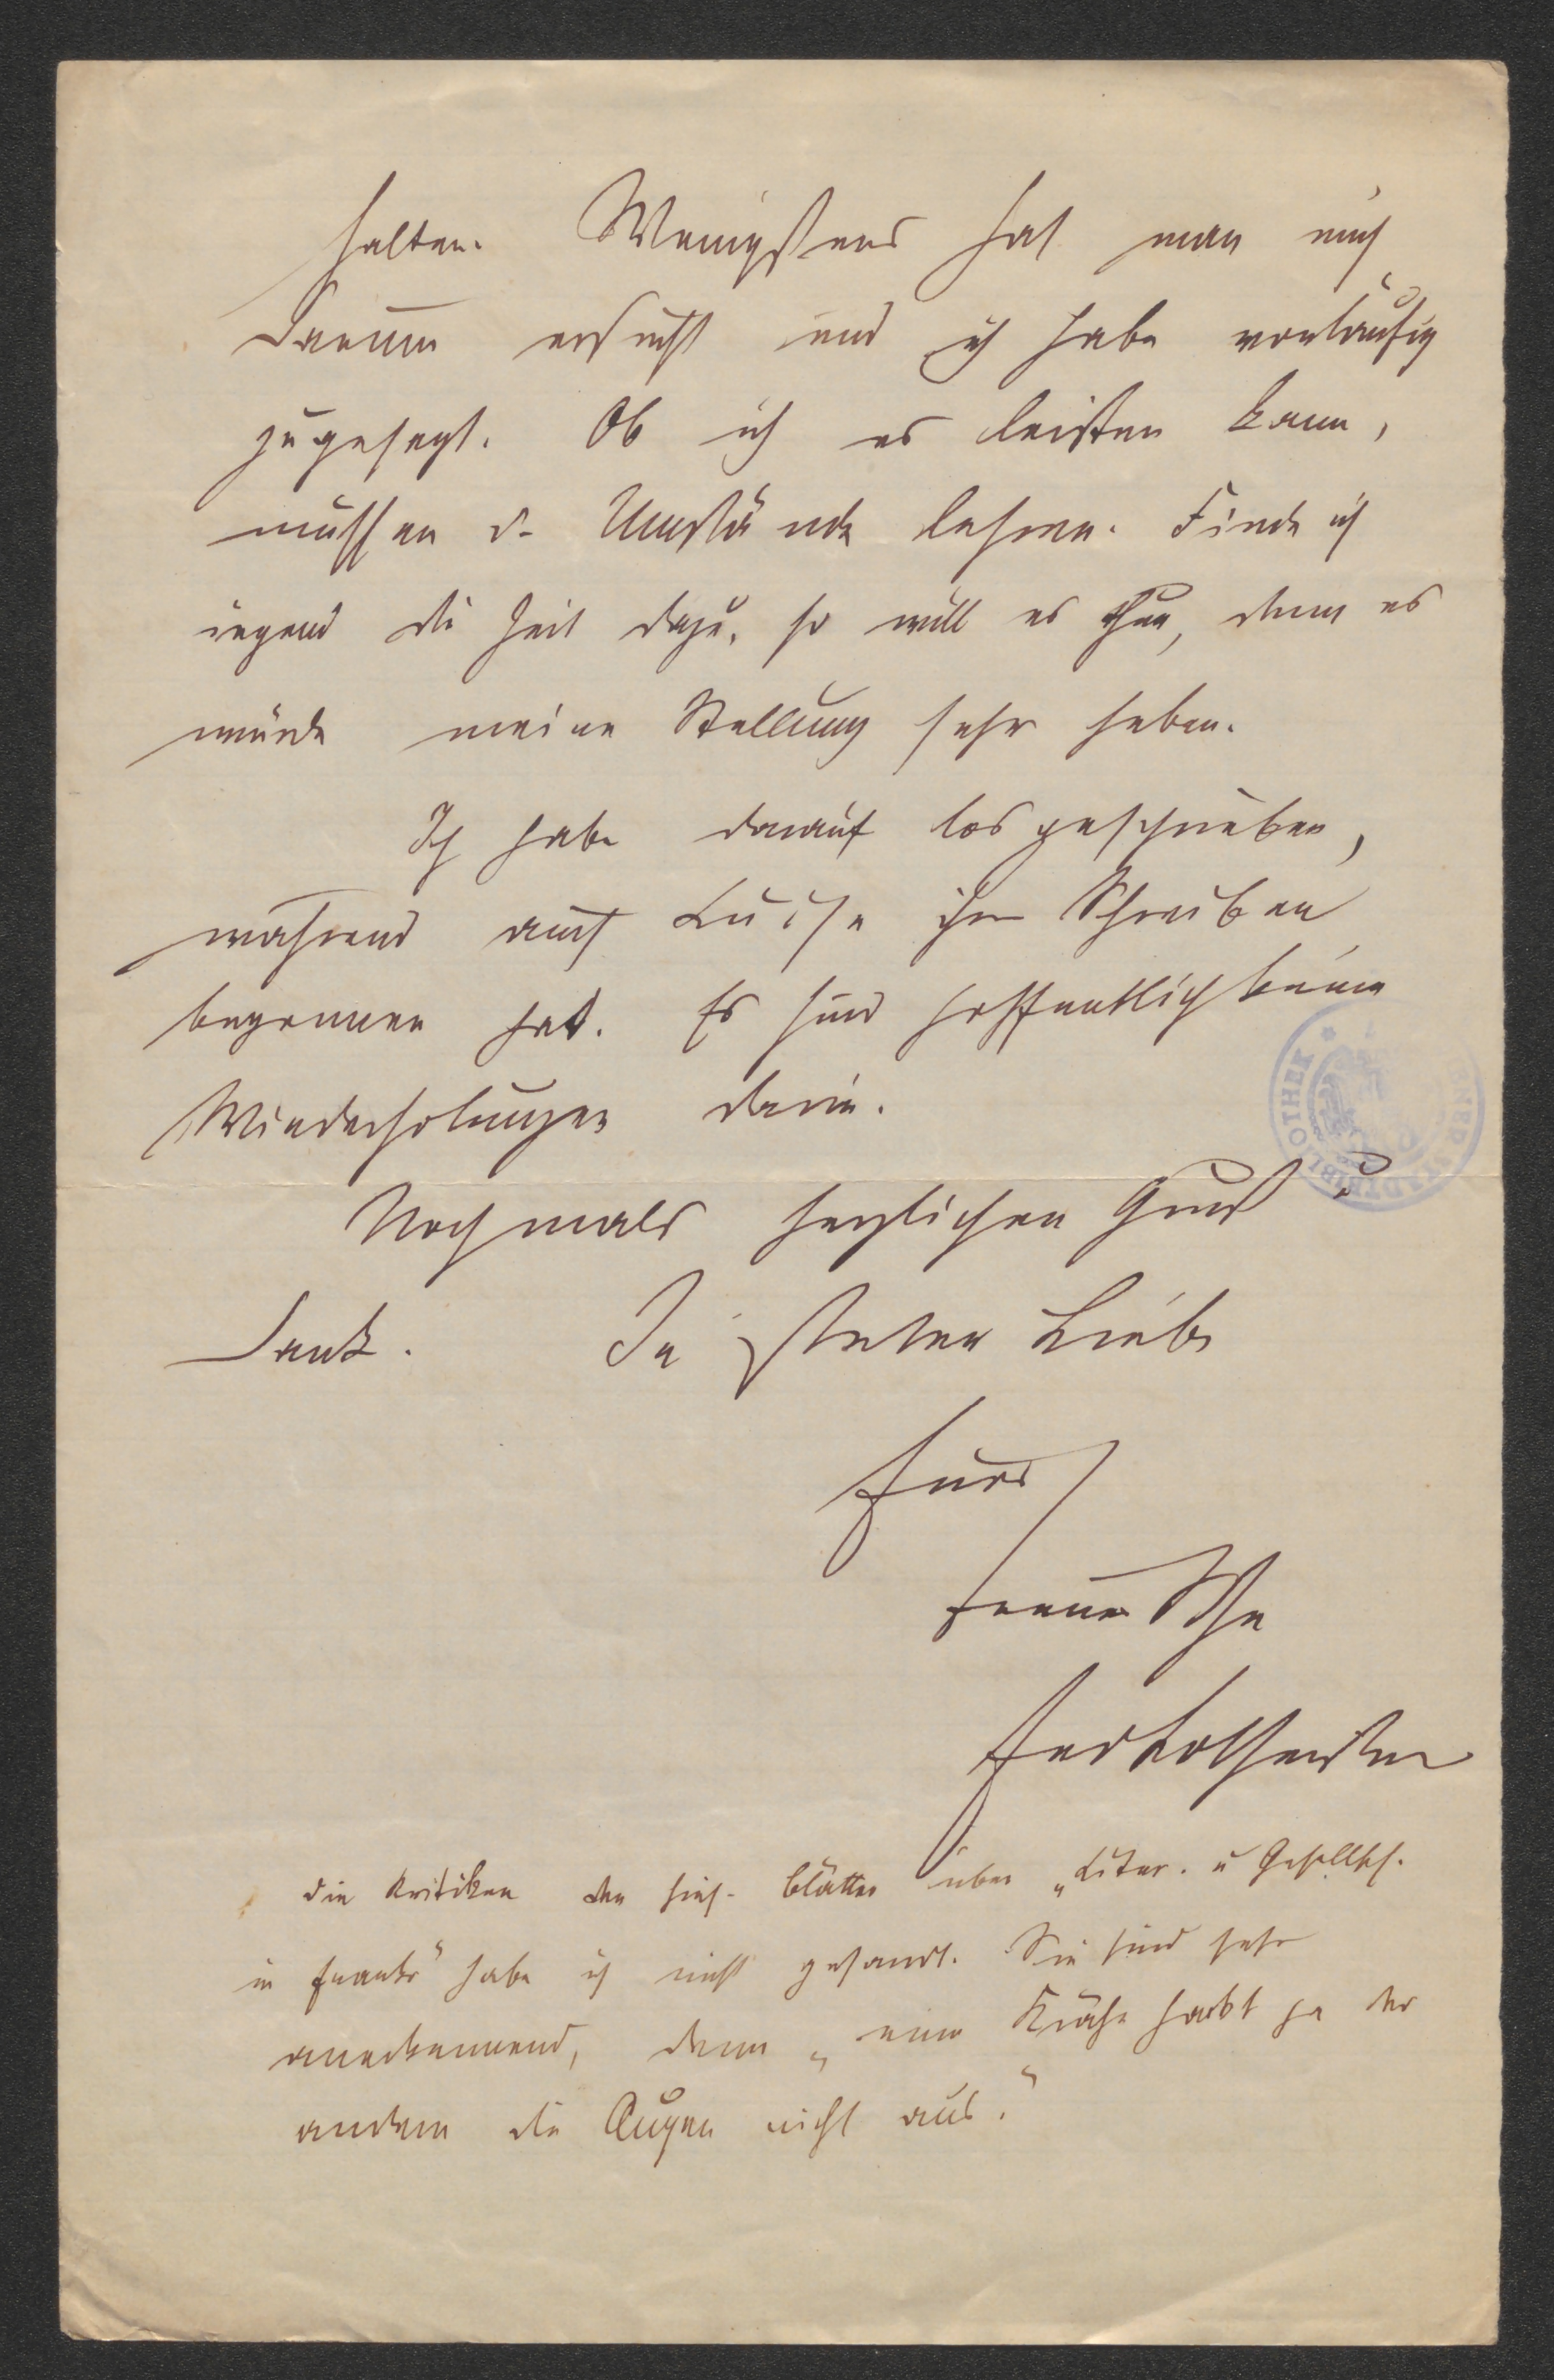 halten. Wenigstens hat man mich
darum ersucht und ich habe vorläufig
zugesagt. Ob ich es leisten kann,
müssen d. Umstände lehren. Finde ich
irgend die Zeit dazu, so will es thun, denn es
würde meine Stellung sehr heben.
Ich habe darauf los geschrieben,
während auch Luise ihr Schreiben
begonnen hat. Es sind hoffentlich keine
Wiederholungen darin.
Nochmals herzlichen Gruß u
Dank. In steter Liebe
Euer
treuer
Ferd Lotheißen
BIBLIOTHEK
Die Kritiken der hies. Blätter über „Liter. u Gesellsch.
in Frankr" habe ich nicht gesandt. Sie sind sehr
anerkennend, denn „eine Krähe hackt ja der
andern die Augen nicht aus."